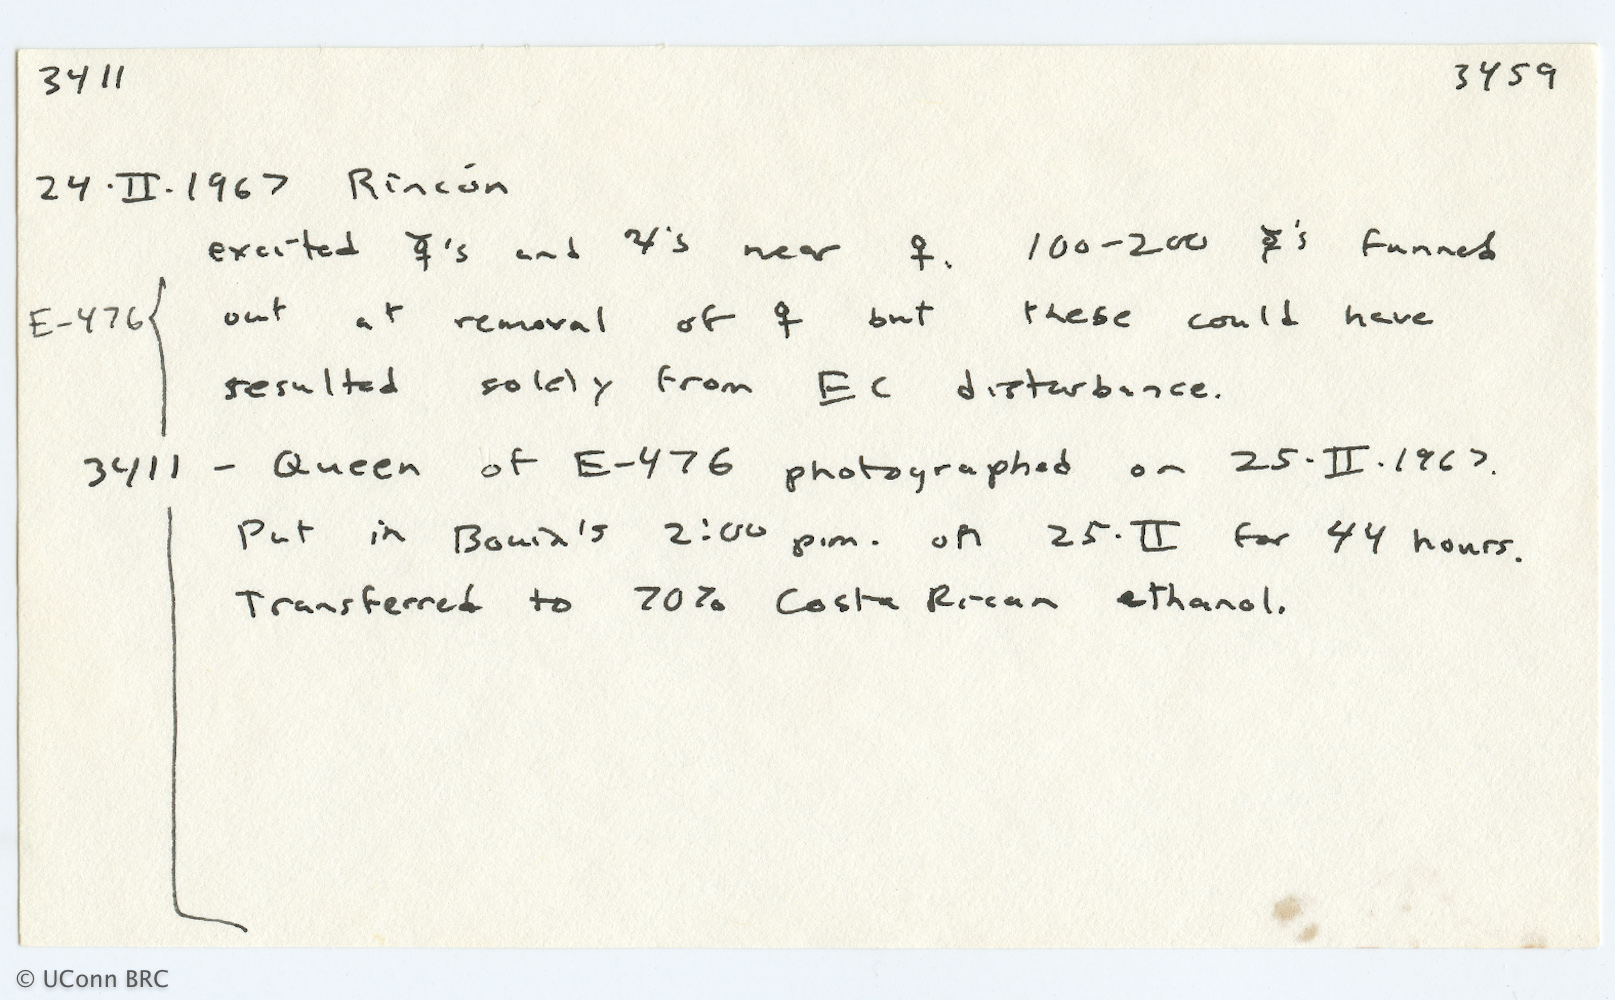 3411 3459
24.II.1967 Rincón
excited ☿'s and ♃'s near ♀. 100-200 ☿'s fanned
E-476 out at removal of ♀ but these could have
resulted solely from EC disturbance.
3411 - Queen of E-476 photographed on 25.II.1967.
Put in Bouin's 2:00 p.m. on 25.II for 44 hours.
Transferred to 70% Costa Rican ethanol.
© UConn BRC